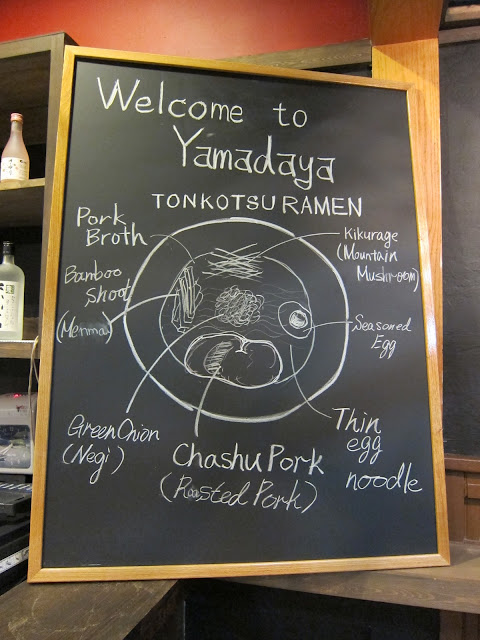 Welcome to
Yamadaya
TONKOTSU RAMEN
Pork
Broth
Kikurage
(Mountain
Mushroom)
Bamboo
Shoot
(Menma)
Seasoned
Egg
Green Onion
(Negi)
Chashu Pork
(Roasted Pork)
Thin
egg
noodle